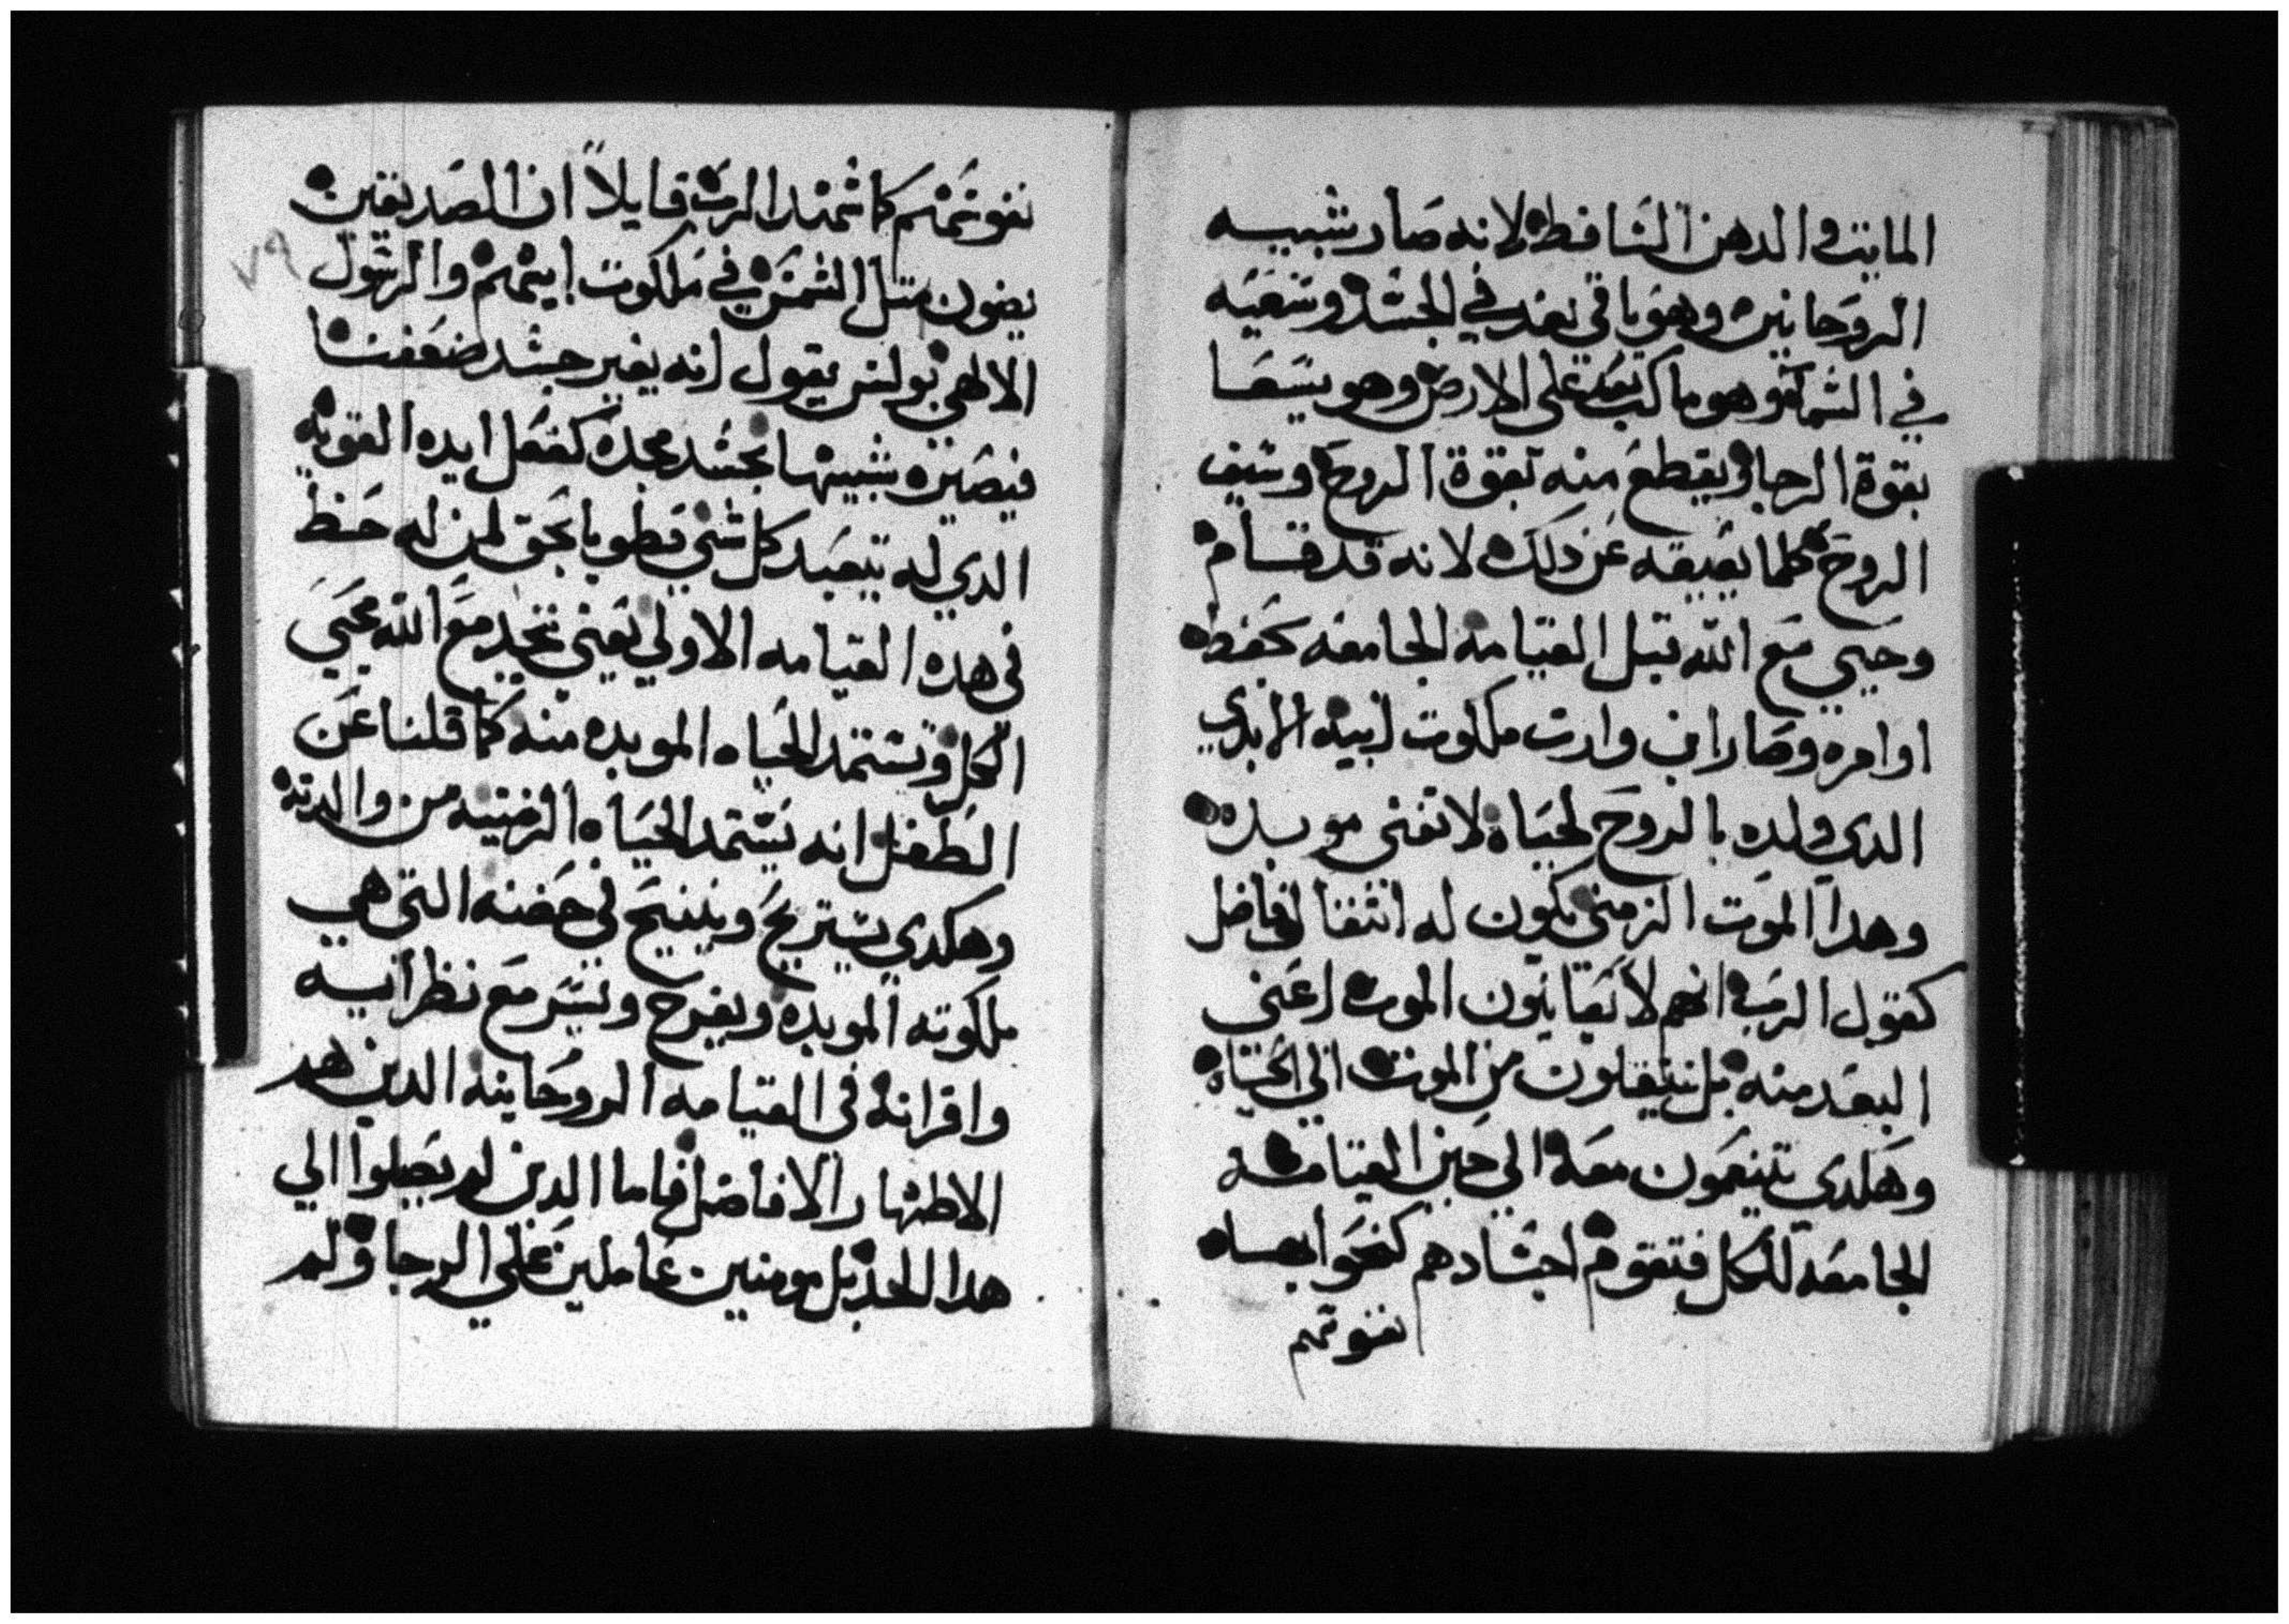 المايت والدهن الساقط لانه صار شبيه
الروحانين وهو باقي بعد في الجسد وسعيه
في السما وهو ماكث بعد على الارض وهو يسعا
بقوة الرجا ويقطع منه بقوة الروح وسيف
الروح كلما يعيقه عن دلك لانه قد قام
وحيي مع الله قبل القيامه الجامعه بحفظه
اوامره وصار ابن وارت ملكوت ابيه الابدي
الدي ولده بالروح لحياه لا تفنى موبده
وهدا الموت الزمني يكون له انتقال فاضل
كقول الرب انهم لا يعاينون الموت اعني
البعد منه بل ينتقلون من الموت الي الحياه
وهكدي يتنعمون معه الي حين القيامه
الجامعه للكل فتقوم اجسادهم كنحو ابعساه
نفوسهم
نفوسهم كما شهد الرب قايلاً ان الصديقين
يضون متل الشمس في ملكوت ابيهم والرسول
الالهي بولس يقول انه يغير جسد ضعفنا
فيصيره شبيها بجسد مجده كفعل ايده القويه
الدي له يتعبد كل شي فطوبا بحق لمن له حظ
في هده القيامه الاولي يعني يتحد مع الله محيي
الكل ويستمد الحياه الموبده منه كما قلنا عن
الطفل انه يستمد الحياه الزمنيه من والدته
وهكدي يستريح ويتنيح في حضنه التي هي
ملكوته الموبده ويفرح ويسر مع نظرائه
واقرانه في القيامه الروحانيه الدين هم
الاطهار الافاضل فاما الدين لم يصلوا الي
هدا الحد بل مومنين عاملين علي الرجا ولم
٧٩